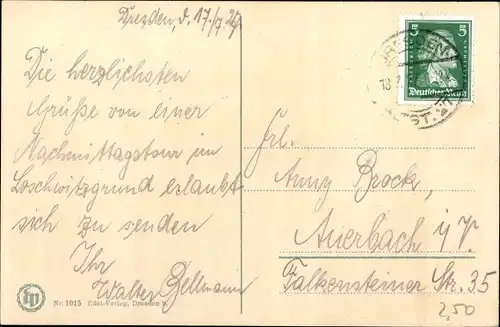 Dresden, d. 17./7. 29.
Die herzlichsten
Grüße von einer
Nachmittagstour im
Loschwitzgrund erlaubt
sich zu senden
Ihr
Walter Bellmann
Nr. 1015 Edel-Verlag, Dresden
DRESDEN
5 5
Deutsches Reich
Frl.
Anny Brock,
Auerbach i/V.
Falkensteiner Str. 35
2,50